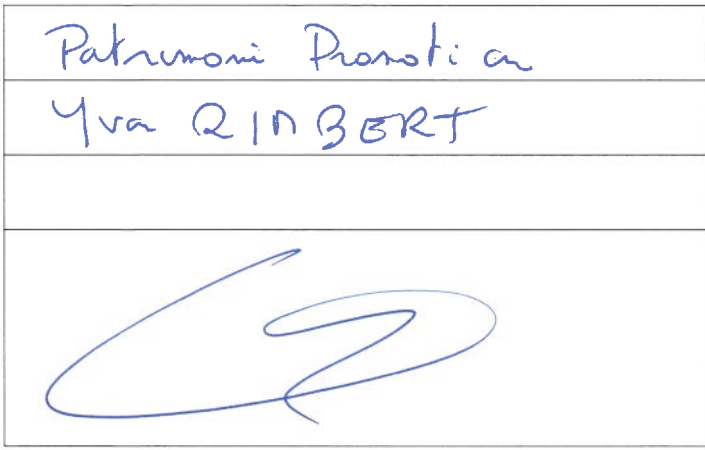 Patrimoni Promotion
Yvan RIMBERT